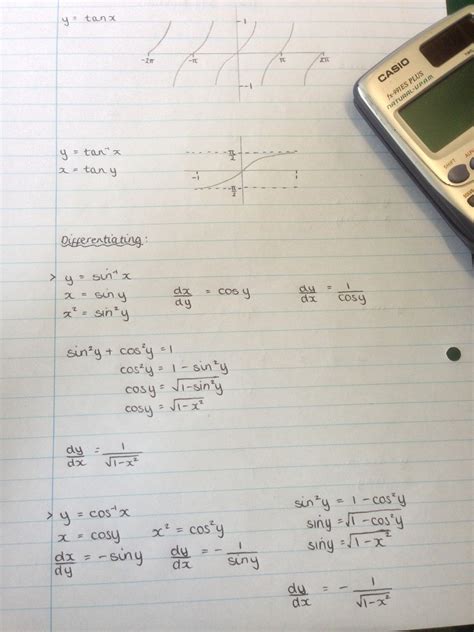 y = tanx
1
-2π -π π 2π
-1
CASIO
fx-991ES PLUS
NATURAL-V.P.A.M.
SHIFT
y = tan⁻¹x
x = tany
π/2
-1 1
-π/2
Differentiating:
> y = sin⁻¹x
x = siny dx/dy = cosy dy/dx = 1/cosy
x² = sin²y
sin²y + cos²y = 1
cos²y = 1 - sin²y
cosy = √1-sin²y
cosy = √1-x²
dy/dx = 1/√1-x²
> y = cos⁻¹x
x = cosy x² = cos²y
dx/dy = -siny dy/dx = - 1/siny
sin²y = 1 - cos²y
siny = √1-cos²y
siny = √1-x²
dy/dx = - 1/√1-x²